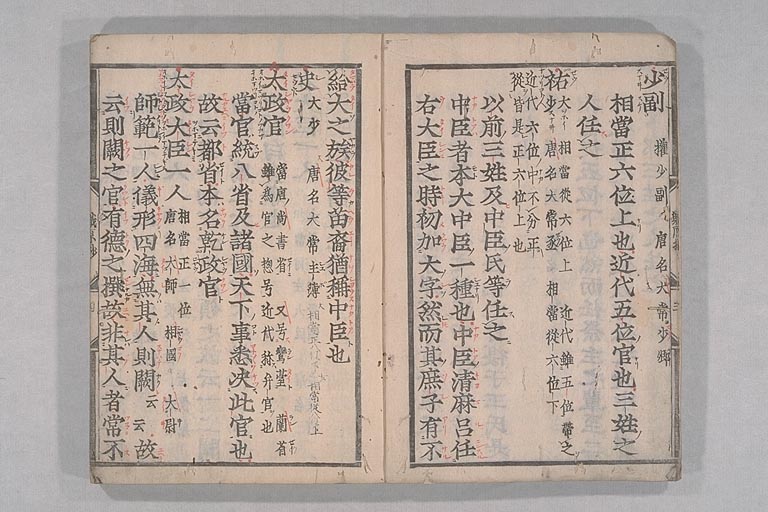 少副 權少副 唐名大常少卿
相當正六位上也近代五位官也三姓之
人任之
祐 大 相當從六位上 近代雖五位帶之
少 唐名大常丞 相當從六位下
近代六位中不分正
從皆是正六位上也
以前三姓及中臣氏等任之
中臣者本大中臣一種也中臣清麻呂任
右大臣之時初加大字然而其庶子有不
給大之族彼等苗裔猶稱中臣也
史 大少 唐名大常主簿
太政官 當唐尚書省 又号鸞堂 蘭省
雖為官之惣号近代為弁官也
當官統八省及諸國天下事悉决此官也
故云都省本名乾政官
太政大臣一人 相當正一位
唐名大師 相國 大尉
師範一人儀形四海無其人則闕云云故
云則闕之官有德之撰故非其人者常不